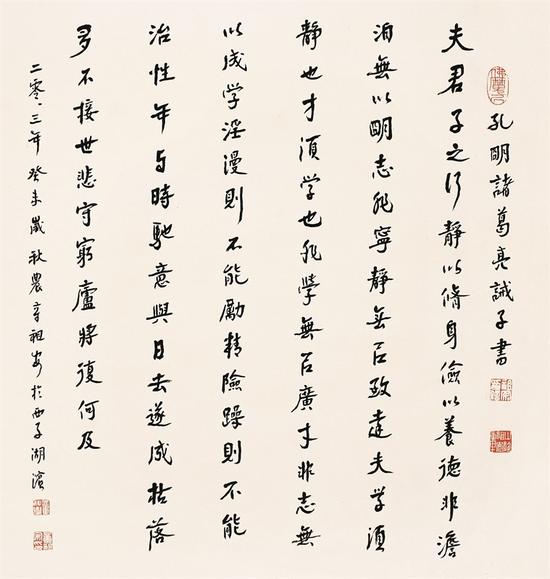 孔明諸葛亮誡子書
夫君子之行靜以脩身儉以養德非澹
泊無以明志非寧靜無以致遠夫学須
靜也才須学也非學無以廣才非志無
以成学淫漫則不能勵精險躁則不能
治性年与時馳意與日去遂成枯落
多不接世悲守窮廬將復何及
二零〇三年癸未歲秋農章祖安於西子湖濱